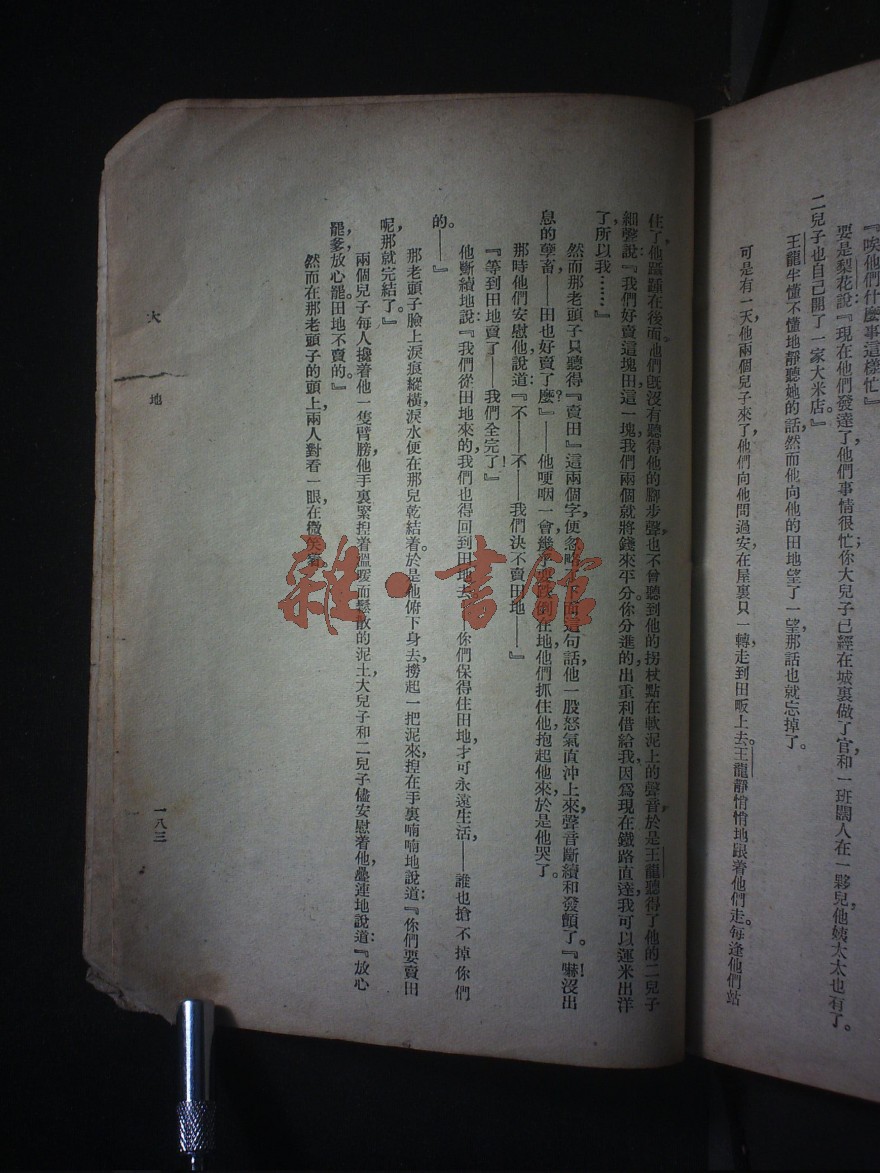 『唉他們什麼事這樣忙』
要是梨花說：『現在他們發達了，他們事情很忙；你大兒子已經在城裏做了官，和一班闊人在一夥兒，他姨太太也有了。
二兒子也自己開了一家大米店。』
王龍半懂不懂地靜聽她的話，然而他向他的田地望了一望，那話也就忘掉了。
可是有一天，他兩個兒子來了，他們向他問過安，在屋裏只一轉，走到田畈上去。王龍靜悄悄地跟着他們走。每逢他們站
住了，他躊躇在後面。他們旣沒有聽得他的腳步聲，也不曾聽到他的拐杖點在軟泥上的聲音，於是王龍聽得了他的二兒子
細聲說：『我們好賣這塊田，這一塊，我們兩個就將錢來平分。你分進的，出重利借給我，因爲現在鐵路直達，我可以運米出洋
了，所以我……』
然而那老頭子只聽得『賣田』這兩個字，便忽略了這句話，他一股怒氣直沖上來，聲音斷續和發顫了。『嚇！沒出
息的孽畜，——田也好賣了麼？』——他哽咽一會，幾乎要跌到在地，他們抓住他，抱起他來，於是他哭了。
那時他們安慰他說道：『不——不——我們決不賣田地——』
『等到田地賣了——我們全完了！』
他斷續地說：『我們從田地來的，我們也得回到田地去——你們保得住田地，才可永遠生活，——誰也搶不掉你們
的。——』
那老頭子臉上淚痕縱橫，淚水便在那兒乾結着。於是他俯下身去，撈起一把泥來，揑在手裏，喃喃地說道：『你們要賣田
呢，那就完結了。』
兩個兒子每人攙着他一隻臂膀，他手裏緊揑着溫暖而鬆散的泥土。大兒子和二兒子儘安慰着他，疊連地說道：『放心
罷，爹，放心罷。田地不賣的。』
然而在那老頭子的頭上，兩人對看一眼，在微笑着。
大地
一八三
雜·書館